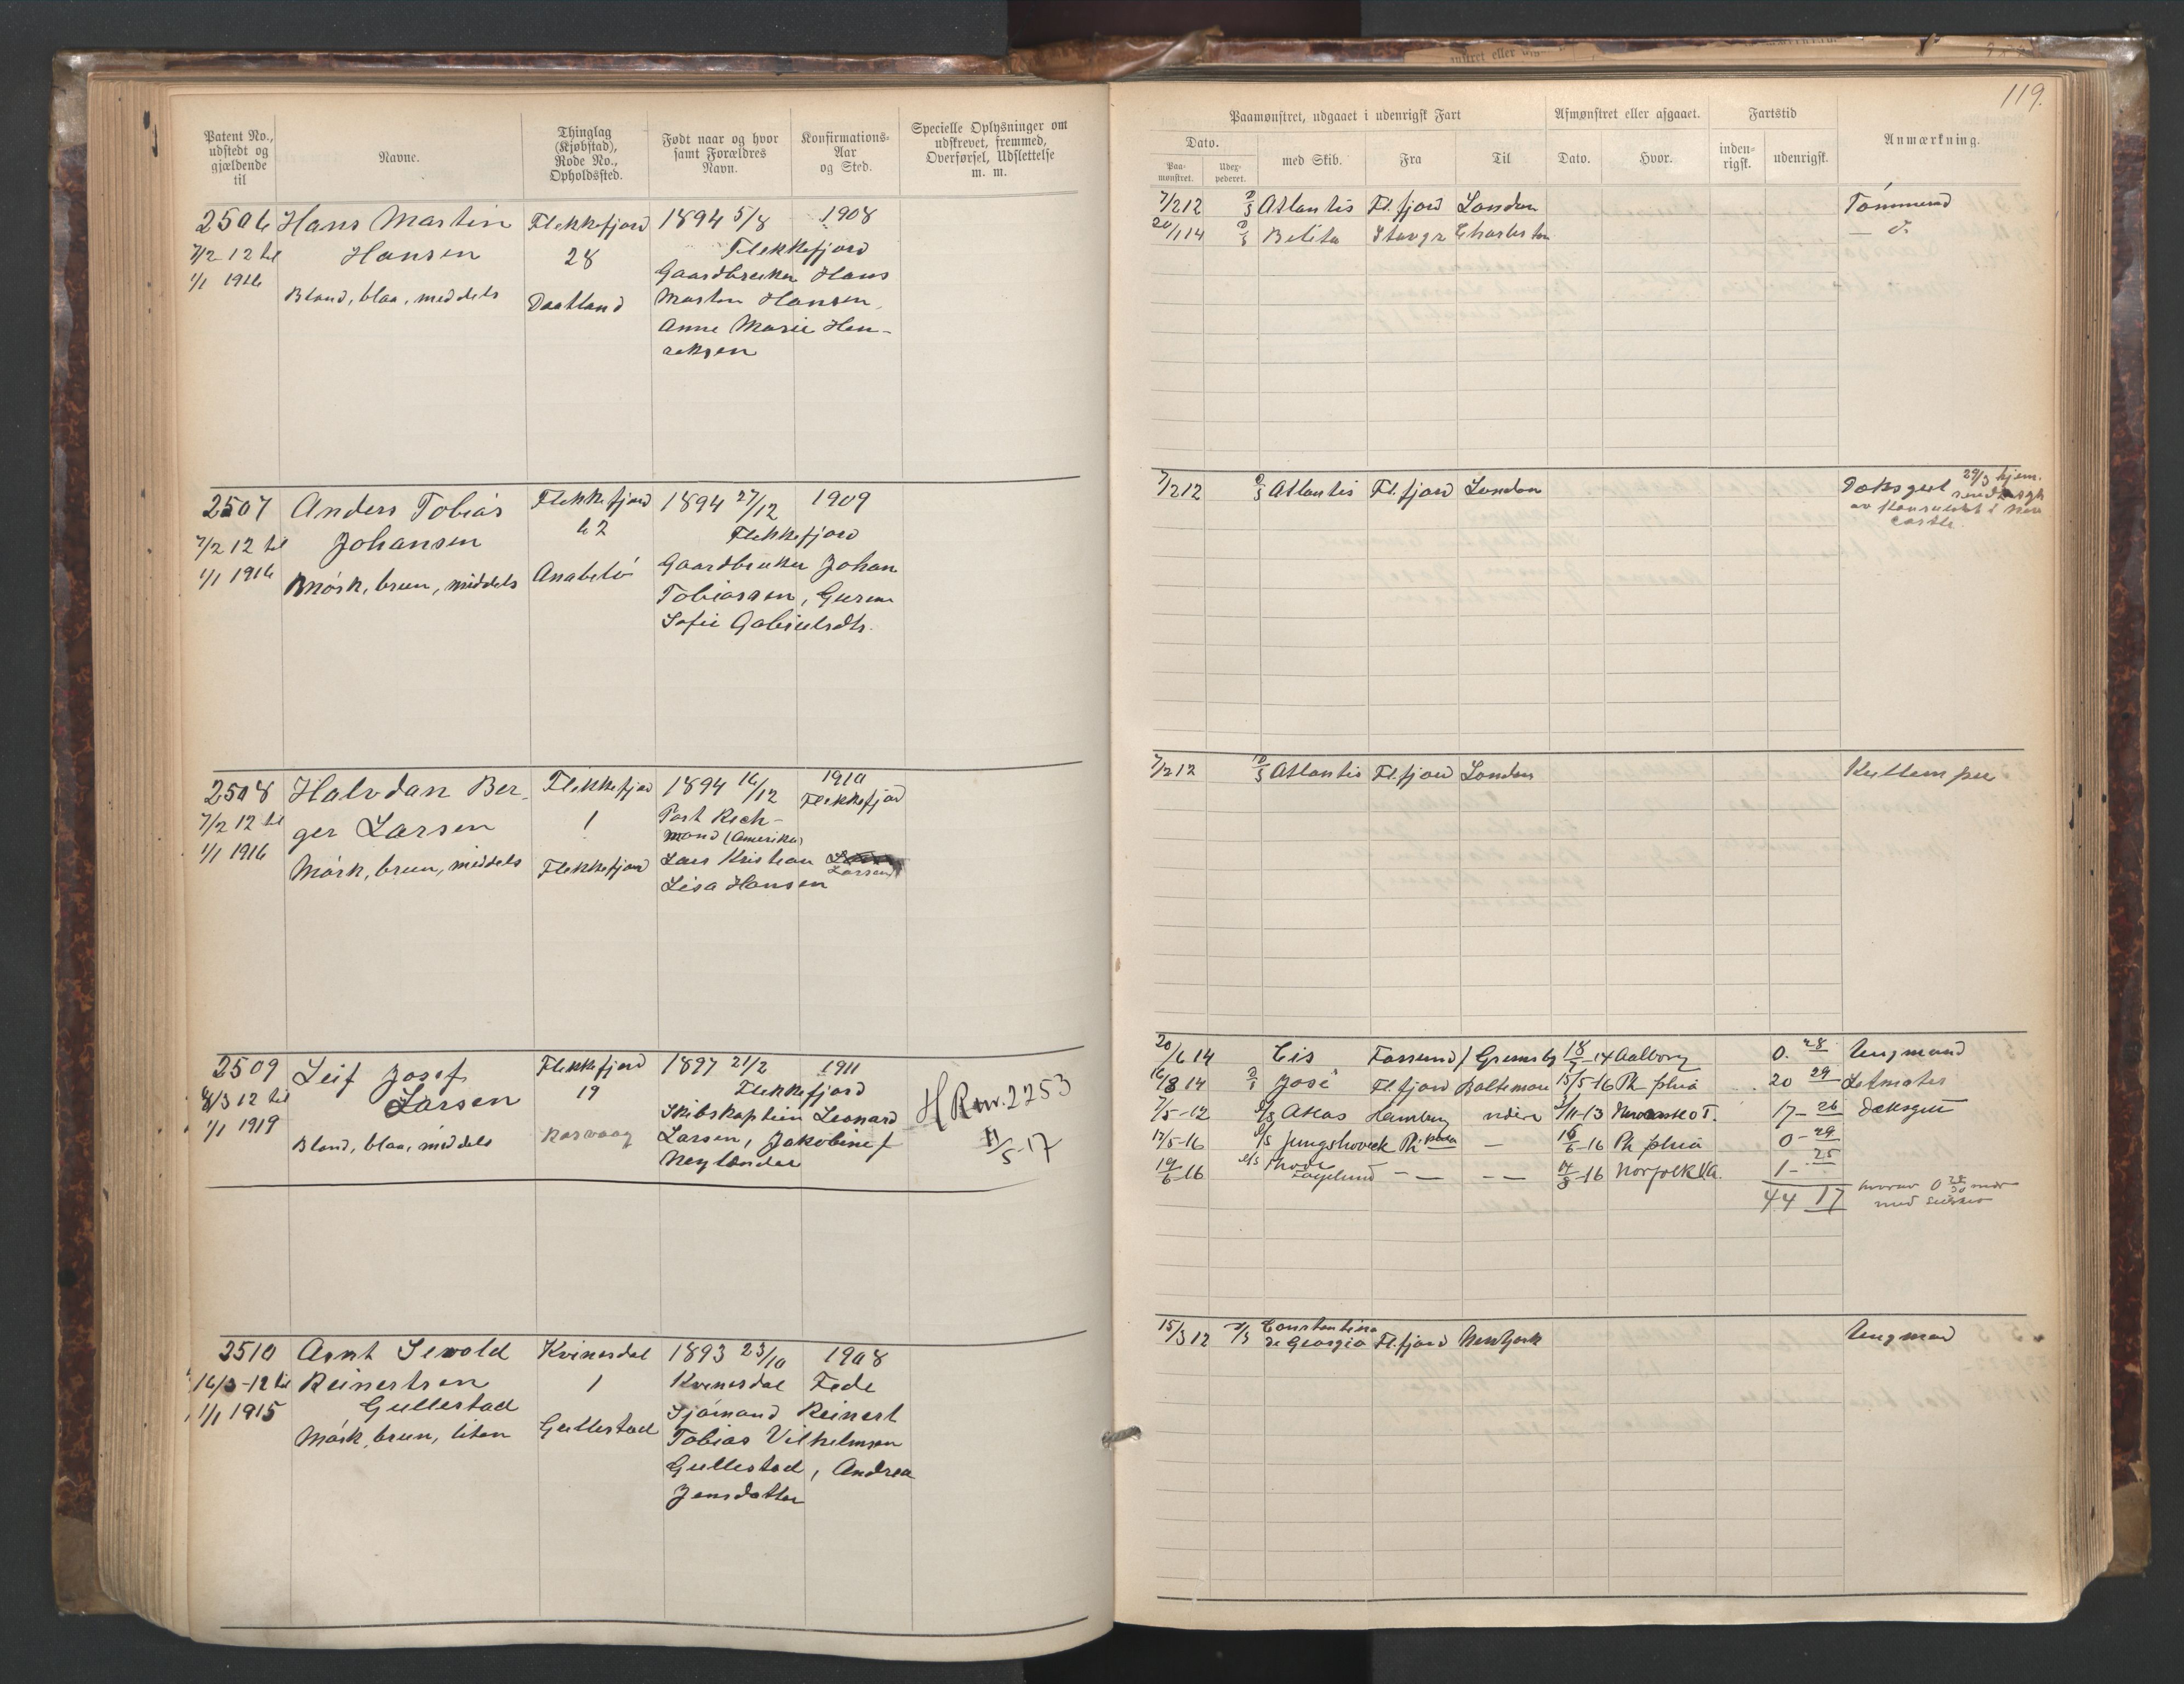 119.
Patent No., udstedt og gjældende til
Navne.
Thinglag (Kjøbstad), Rode No., Opholdssted.
Født naar og hvor samt Forældres Navn.
Konfirmations-Aar og Sted.
Specielle Oplysninger om udskrevet, fremmed, Overførsel, Udslettelse m. m.
Paamønstret, udgaaet i udenrigsk Fart
Afmønstret eller afgaaet.
Fartstid
Anmærkning.
Dato.
Paa-mønstret.
Udex-pederet.
med Skib.
Fra
Til
Dato.
Hvor.
inden-rigsk.
udenrigsk.
2506 Hans Martin Flekkefjord 1894 5/8 1908
7/2 12 til Hansen 28 Flekkefjord
1/1 1916 Blond, blaa, middels Daatland Gaardbruker Hans
Martin Hansen,
Anne Marie Hen-
reksen
7/2 12 Atlantis Fl.fjord London Tömmermd
20/1 14 Belita Stavgr Charleston — d.
2507 Anders Tobias Flekkefjord 1894 27/12 1909
7/2 12 til Johansen 42 Flekkefjord
1/1 1916 Mörk, brun, middels Anabelö Gaardbruker Johan
Tobiassen, Guren
Sofie Gabrielsdtr.
7/2 12 Atlantis Fl.fjord London Dæksgut 29/3 hjem-
av Konsulatet i New
castle
2508 Halvdan Ber- Flekkefjord 1894 16/12 1910
7/2 12 til ger Larsen 1 Port Rich- Flekkefjord
1/1 1916 mond (Amerika)
Mörk, brun, middels Flekkefjord Lars Kristian Larsen
Lisa Hansen
7/2 12 Atlantis Fl.fjord London Kullemper
2509 Leif Josef Flekkefjord 1897 21/2 1911
8/3 12 til Larsen 19 Flekkefjord
1/1 1919 Blond, blaa, middels Skibskaptein Leonard
Larsen, Jakobine f
Neylander
H R nr. 2253
11/5-17
20/6 14 Eis Fossund Grimsby 18/7-14 Aalborg 0. 28 Ungmand
16/8 14 José Fl.fjord Baltimore 15/5-16 Ph. phia 20 29 Letmatros
7/5-12 Atlas Hamburg videre 3/11-13 17- 26 Dæksgut
17/5-16 Jungshoved Ph. phia — 16/6-16 Ph phia 0- 29
19/6-16 Thode Fagelund — — — 14/8-16 Norfolk Va. 1- 25
44 17
hvorav 0 28/30 mdr
med seilskib
2510 Arnt Sewold Kvinesdal 1893 23/10 1908
16/3-12 til Reinertsen 1 Kvinesdal Fede
1/1 1915 Gullestad Sjömand Reinert
Mörk, brun, liten Gullestad Tobias Vilhelmsen
Gullestad, Andrea
Jensdatter
15/3 12 Constantino
de Georgio Fl.fjord NewYork Ungmand